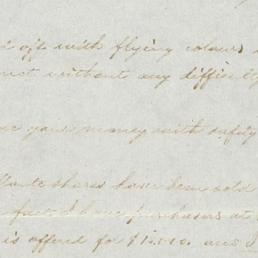 off with flying colours
without any difficulty
your money with safety
shares have been sold
fact I have purchasers at
is offered for $ and I